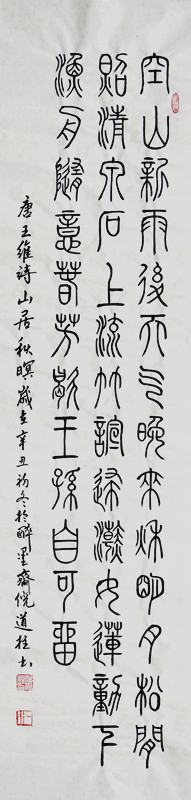 空山新雨後天气晚來秌明月松閒
照清泉石上流竹諠歸澣女蓮動下
漁舟隨意春芳歇王孫自可留
唐王維詩山居秋暝歲在辛丑初冬於醉墨齋倪道桂书